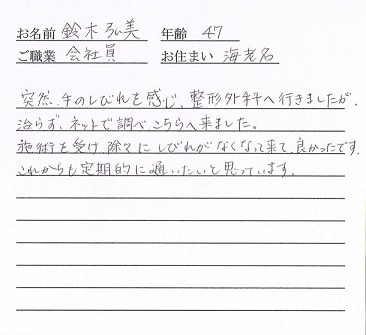 お名前 鈴木弘美 年齢 47
ご職業 会社員 お住まい 海老名
突然、手のしびれを感じ、整形外科へ行きましたが、
治らず、ネットで調べ、こちらへ来ました。
施術を受け、除々にしびれがなくなって来て、良かったです。
これからも定期的に通いたいと思っています。